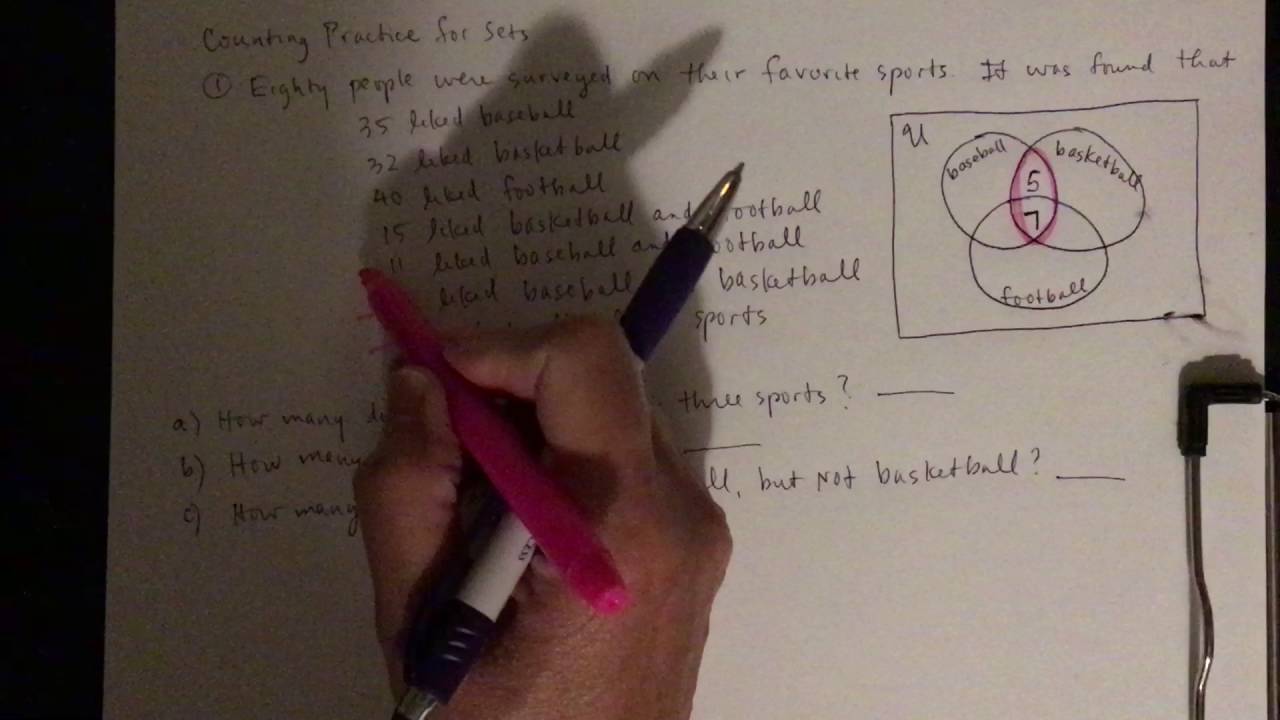 Counting Practice for Sets
① Eighty people were surveyed on their favorite sports. It was found that
35 liked baseball
32 liked basketball
40 liked football
15 liked basketball and football
11 liked baseball and football
liked baseball basketball
sports
U
baseball
basketball
5
7
football
a) How many three sports?
b) How many
c) How many but NOT basketball?